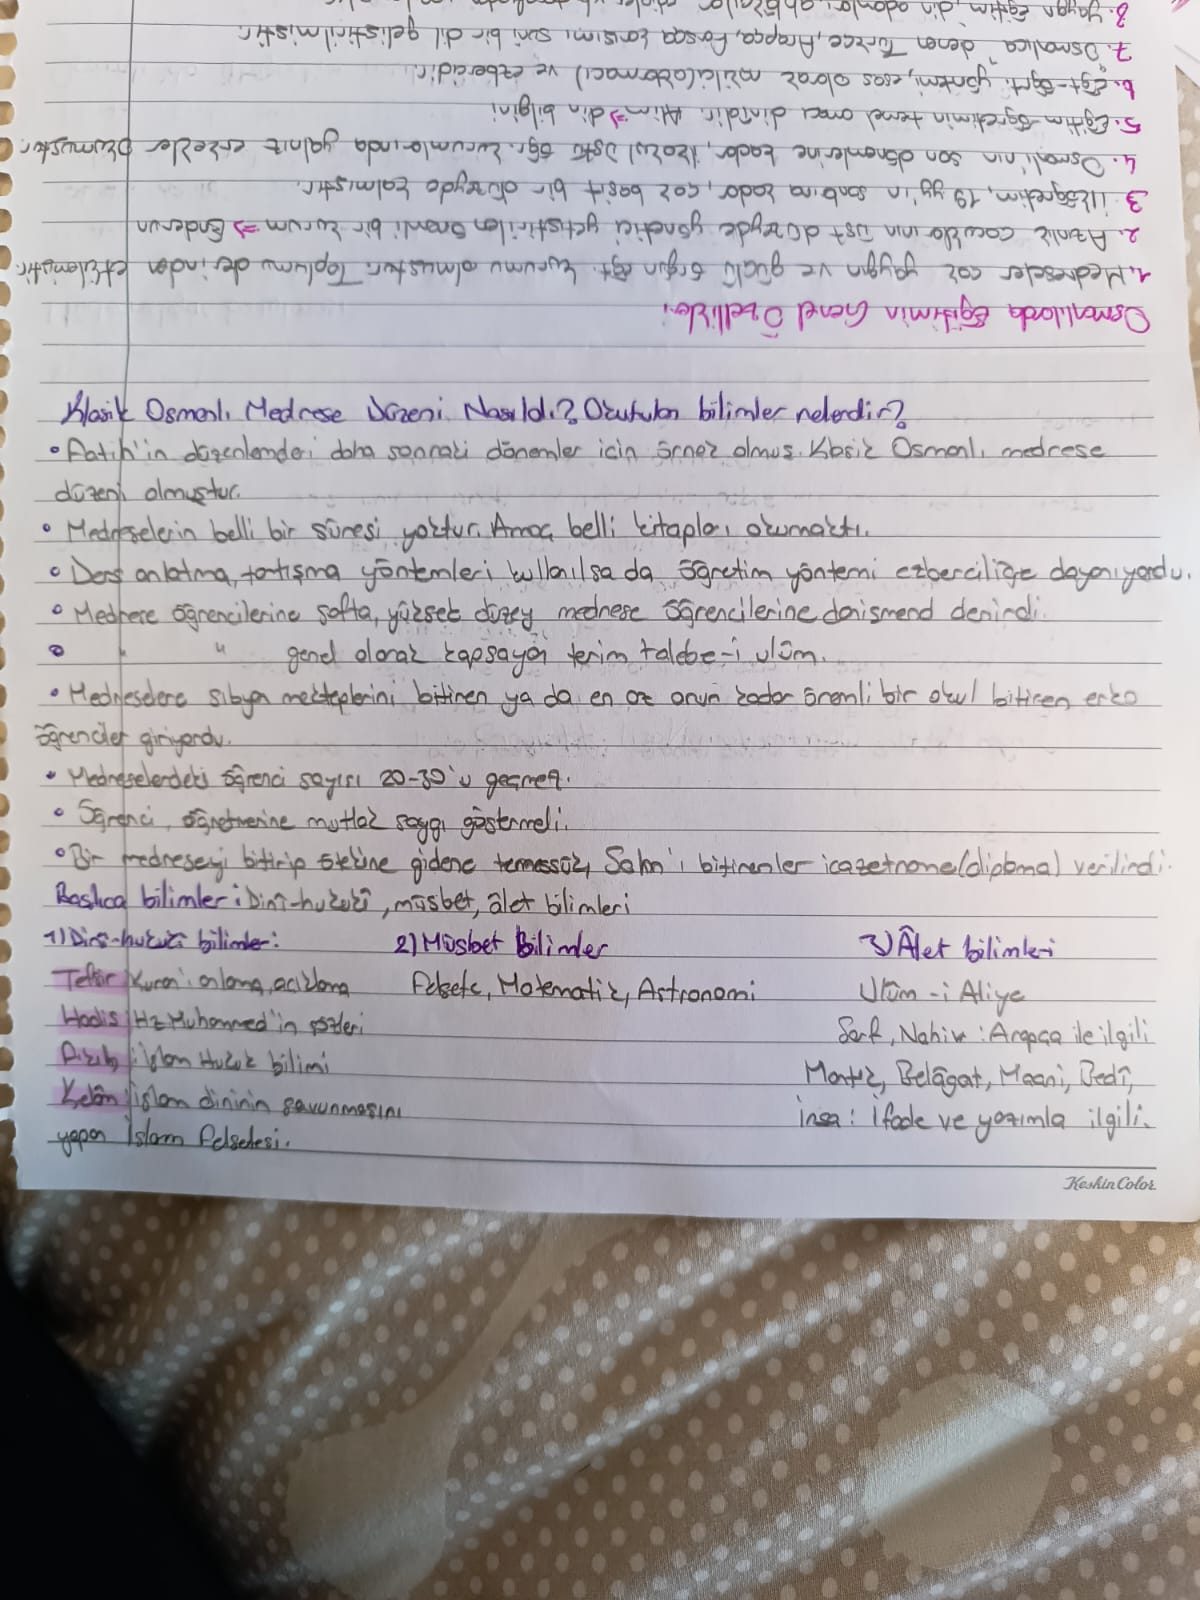 Osmanlılarda Eğitimin Genel Özellikleri
1. Medreseler çok yaygın ve güçlü örgün eğt. kurumu olmuştur. Toplumu derinden etkilemiştir.
2. Azınlık çocuklarının üst düzeyde yönetici yetiştirilen önemli bir kurum => Enderun
3. İlköğretim, 19.yy'ın sonlarına kadar, çok basit bir düzeyde kalmıştır.
4. Osmanlı'nın son dönemlerine kadar, ilkokul üstü öğr. kurumlarında yalnız erkekler okumuştur.
5. Eğitim-öğretimin temel amacı dinidir. Alim => din bilgini
6. Eğt-öğrt. yöntemi, esas olarak nakilci(aktarmacı) ve ezbercidir.
7. "Osmanlıca" denen Türkçe, Arapça, Farsça karışımı suni bir dil geliştirilmiştir.
8. Yaygın eğitim, din adamları,
Klasik Osmanlı Medrese Düzeni Nasıldı? Okutulan bilimler nelerdir?
• Fatih'in düzenlemeleri daha sonraki dönemler için örnek olmuş. Klasik Osmanlı medrese
düzeni olmuştur.
• Medreselerin belli bir süresi yoktur. Amaç belli kitapları okumaktı.
• Ders anlatma, tartışma yöntemleri kullanılsa da öğretim yöntemi ezberciliğe dayanıyordu.
• Medrese öğrencilerine softa, yüksek düzey medrese öğrencilerine danişmend denirdi.
• " " genel olarak kapsayan terim talebe-i ulûm.
• Medreselere sıbyan mekteplerini bitiren ya da en az onun kadar önemli bir okul bitiren erke
öğrenciler giriyordu.
• Medreselerdeki öğrenci sayısı 20-30'u geçmez.
• Öğrenci, öğretmenine mutlak saygı göstermeli.
• Bir medreseyi bitirip ötekine gidene temessük, Sahn'ı bitirenler icazetname(diploma) verilirdi.
Başlıca bilimler: Dinî-hukukî, müsbet, âlet bilimleri
1) Dinî-hukukî bilimler: 2) Müsbet Bilimler 3) Âlet bilimleri
Tefsir Kuran'ı anlama, açıklama Felsefe, Matematik, Astronomi Ulûm-i Aliye
Hadis Hz Muhammed'in sözleri Sarf, Nahiv: Arapça ile ilgili
Fıkıh İslam Hukuk bilimi Mantık, Belâgat, Maani, Bedî,
Kelâm İslam dininin savunmasını İnşa: İfade ve yazımla ilgili.
yapan İslam felsefesi.
KeskinColor